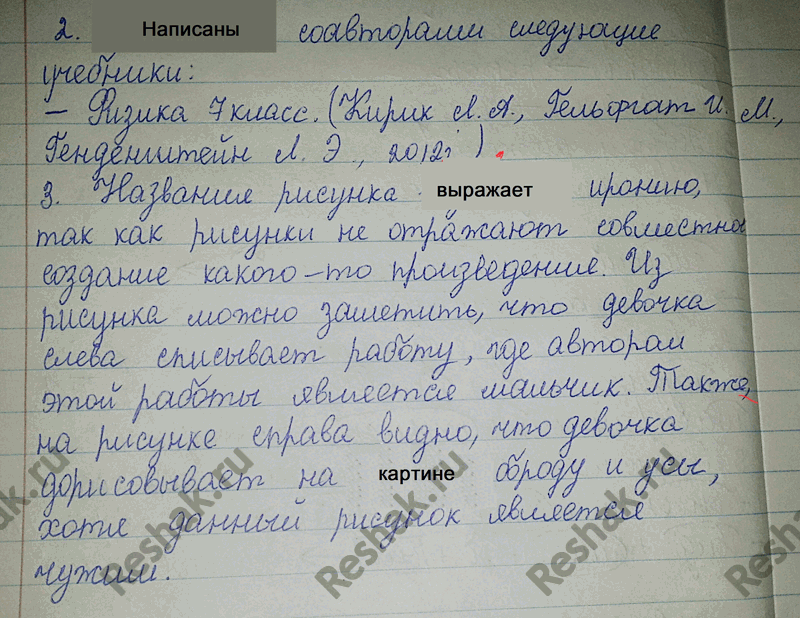 2. Написаны соавторами следующие
учебники:
– Физика 7 класс. (Кирик Л. А., Гельфгат И. М.,
Генденштейн Л. Э., 2012г).
3. Название рисунка выражает иронию,
так как рисунки не отражают совместное
создание какого-то произведения. Из
рисунка можно заметить, что девочка
слева списывает работу, где автором
этой работы является мальчик. Также,
на рисунке справа видно, что девочка
дорисовывает на картине броду и усы,
хотя данный рисунок является
чужим.
Reshak.ru
Reshak.ru
Reshak.ru
Reshak.ru